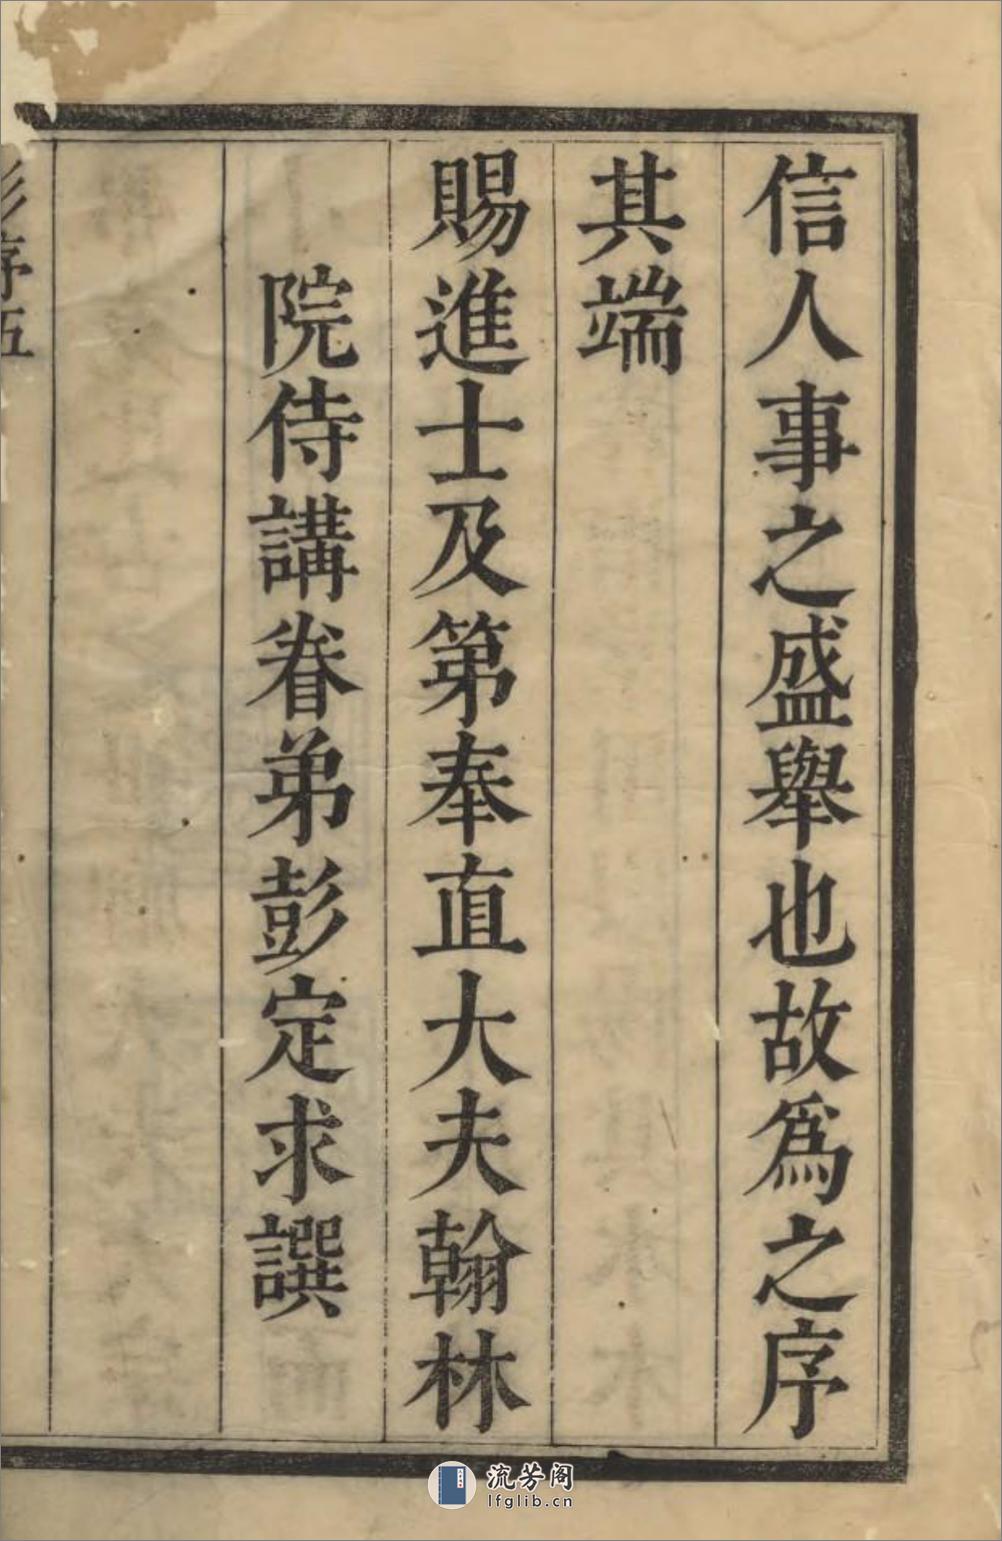 信人事之盛舉也故爲之序
其端
賜進士及第奉直大夫翰林
院侍講眷弟彭定求譔
序五
流芳阁
lfglib.cn